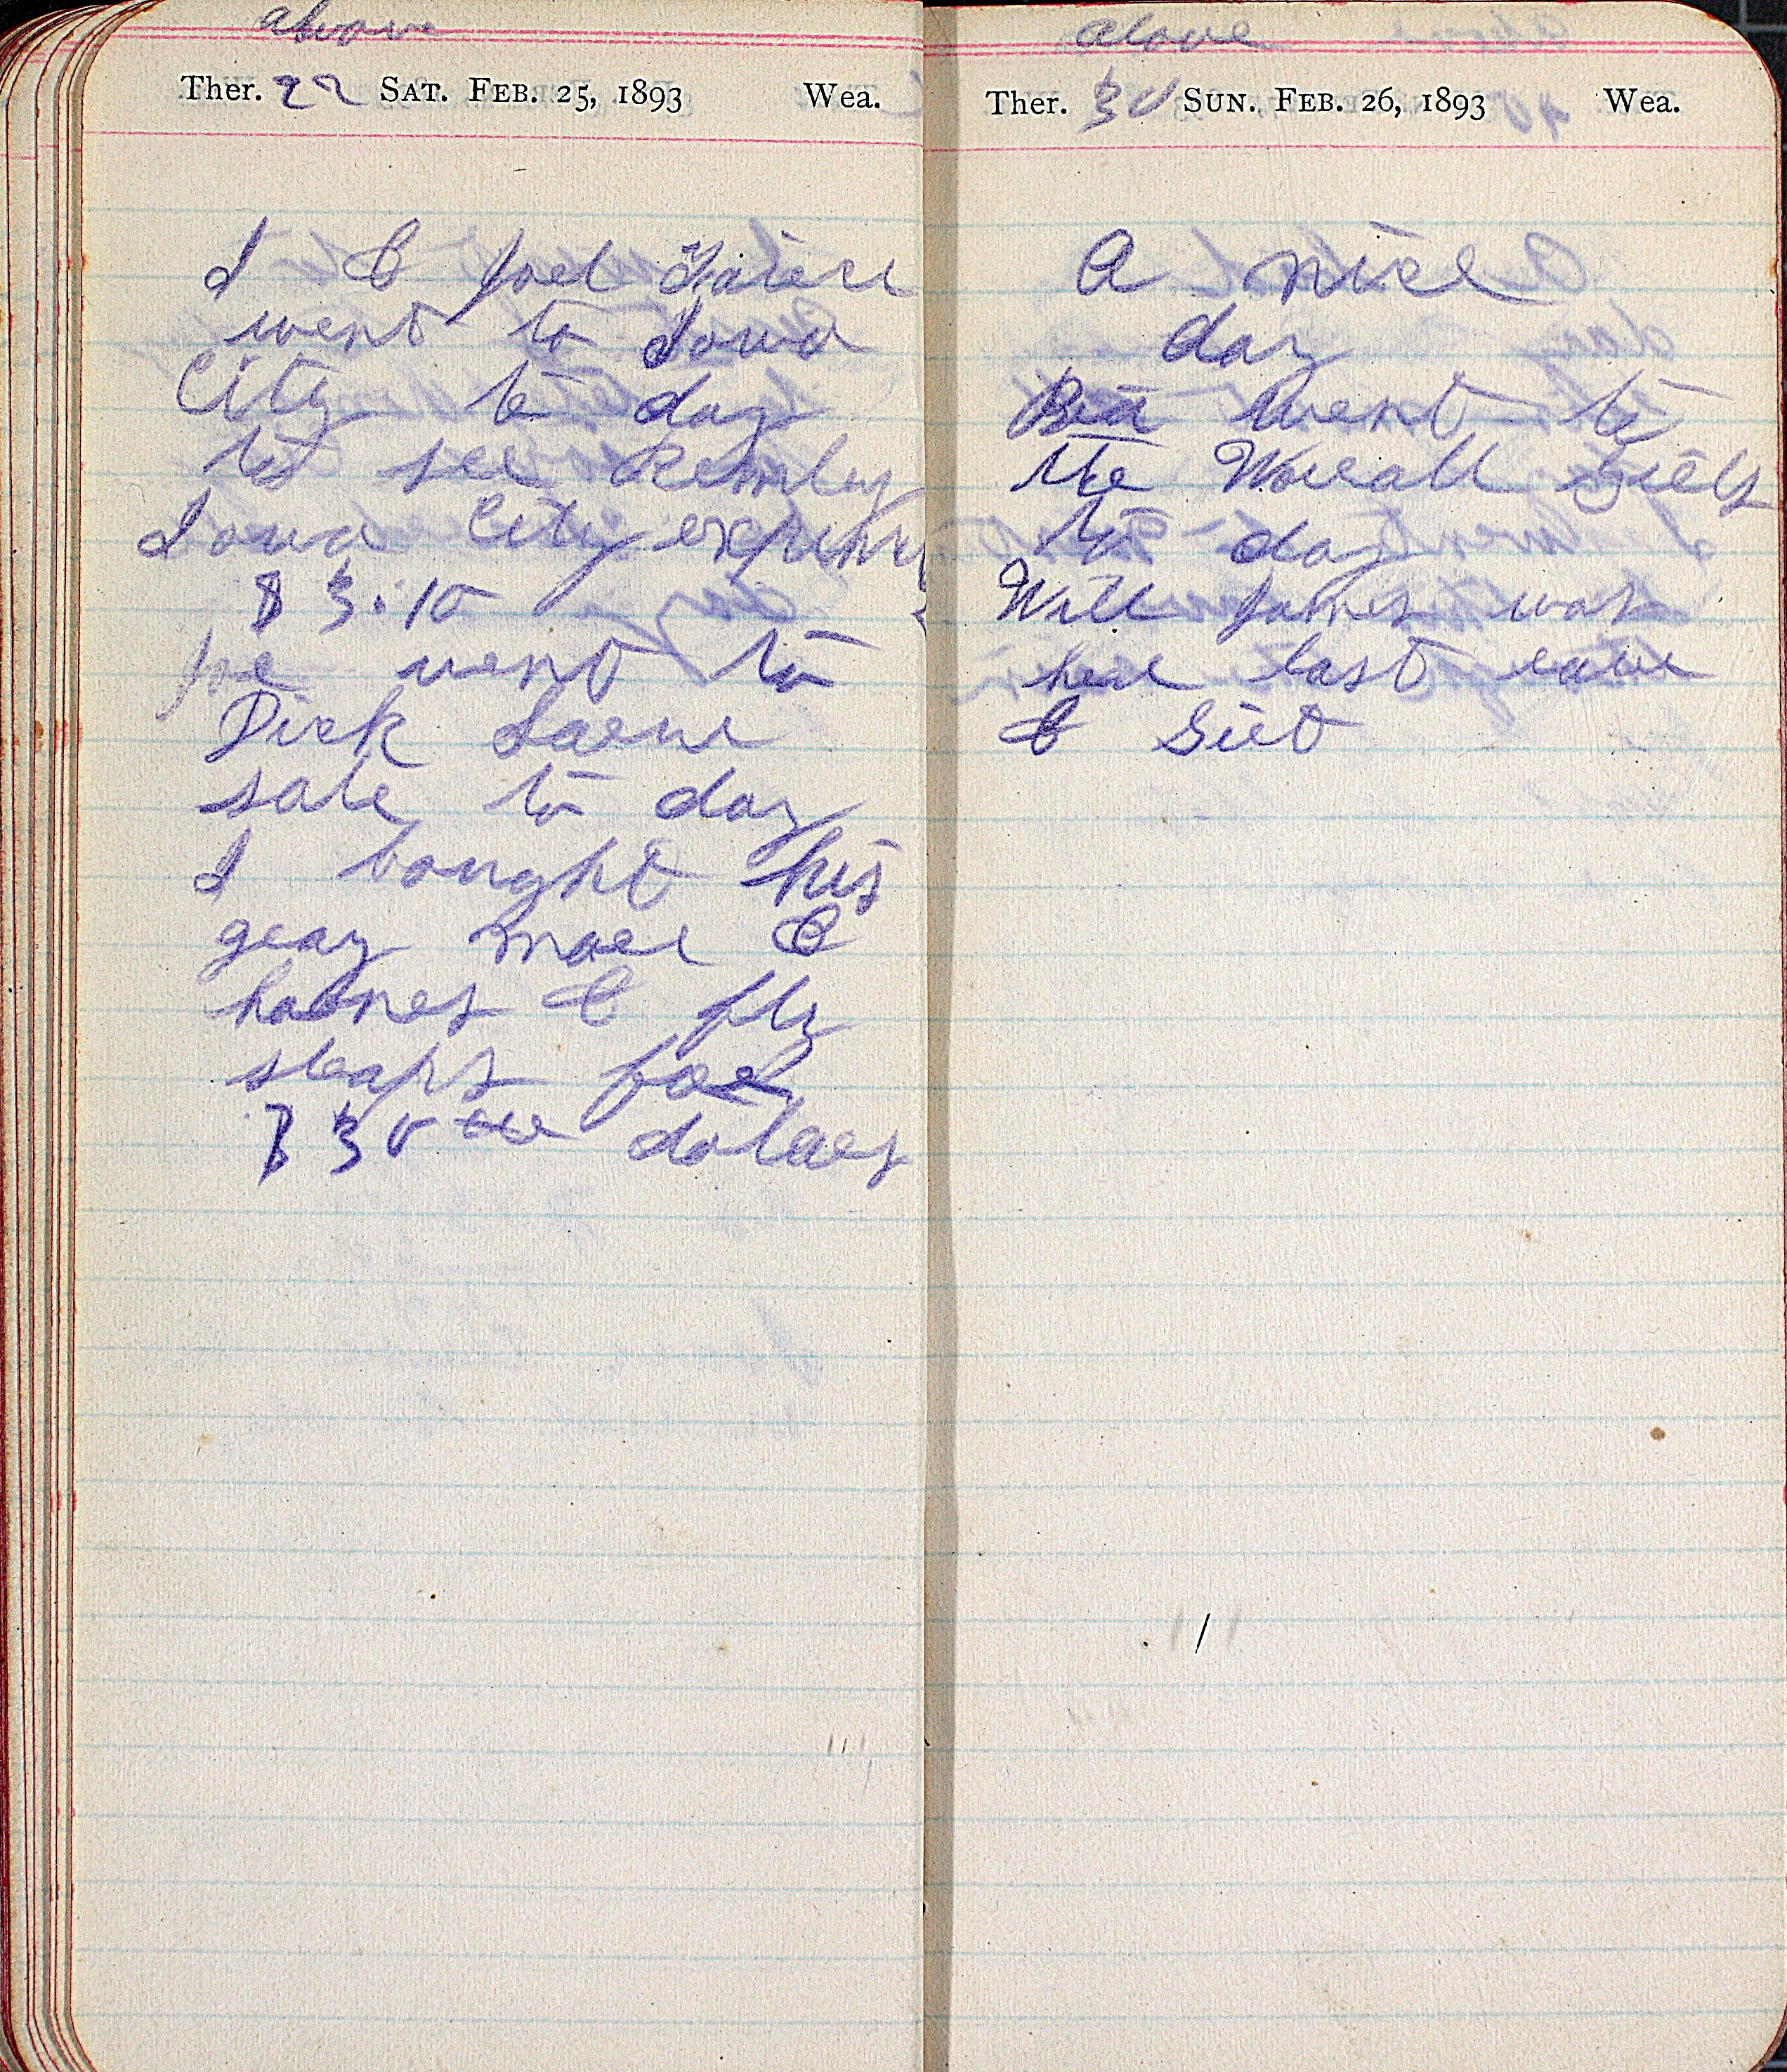 above
Ther. 22 SAT. FEB. 25, 1893 Wea.
I & Joel
went to Iowa
City to day
to see Remley
Iowa City expens
$ 3.10
Joe went to
Dick
sale to day
I bought his
gray mare &
harnes & fly
straps for
$ 30 dolars
above
Ther. 30 SUN. FEB. 26, 1893 Wea.
A nice
day
went to
the Worrall girls
to day
Will James was
here last eave
&